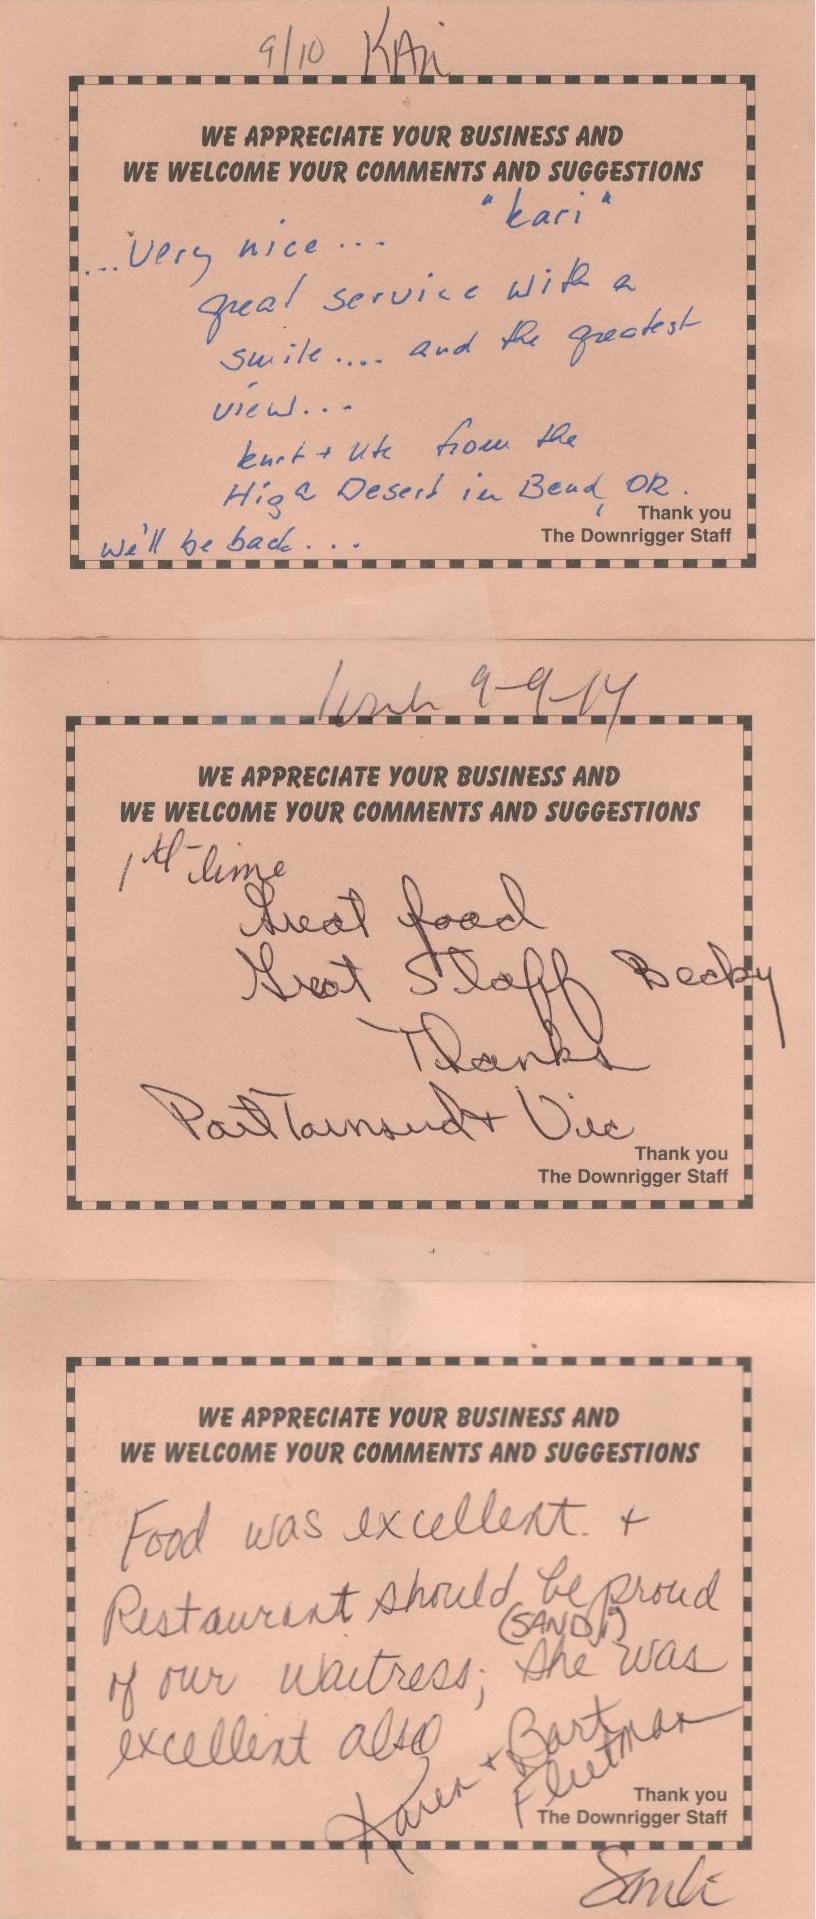 9/10 KARi
WE APPRECIATE YOUR BUSINESS AND
WE WELCOME YOUR COMMENTS AND SUGGESTIONS
"kari"
...very nice...
great service with a
smile.... and the greatest
view...
kurt + Ute from the
High Desert in Bend, OR.
Thank you
we'll be back...
The Downrigger Staff
9-9-14
WE APPRECIATE YOUR BUSINESS AND
WE WELCOME YOUR COMMENTS AND SUGGESTIONS
1th time
Great food
Great Staff Becky
Thanks
Port Townsend + Vic
Thank you
The Downrigger Staff
WE APPRECIATE YOUR BUSINESS AND
WE WELCOME YOUR COMMENTS AND SUGGESTIONS
Food was excellent. +
Restaurant should be proud
(SANDI)
of our waitress; she was
excellent also
Karen + Bart
Thank you
The Downrigger Staff